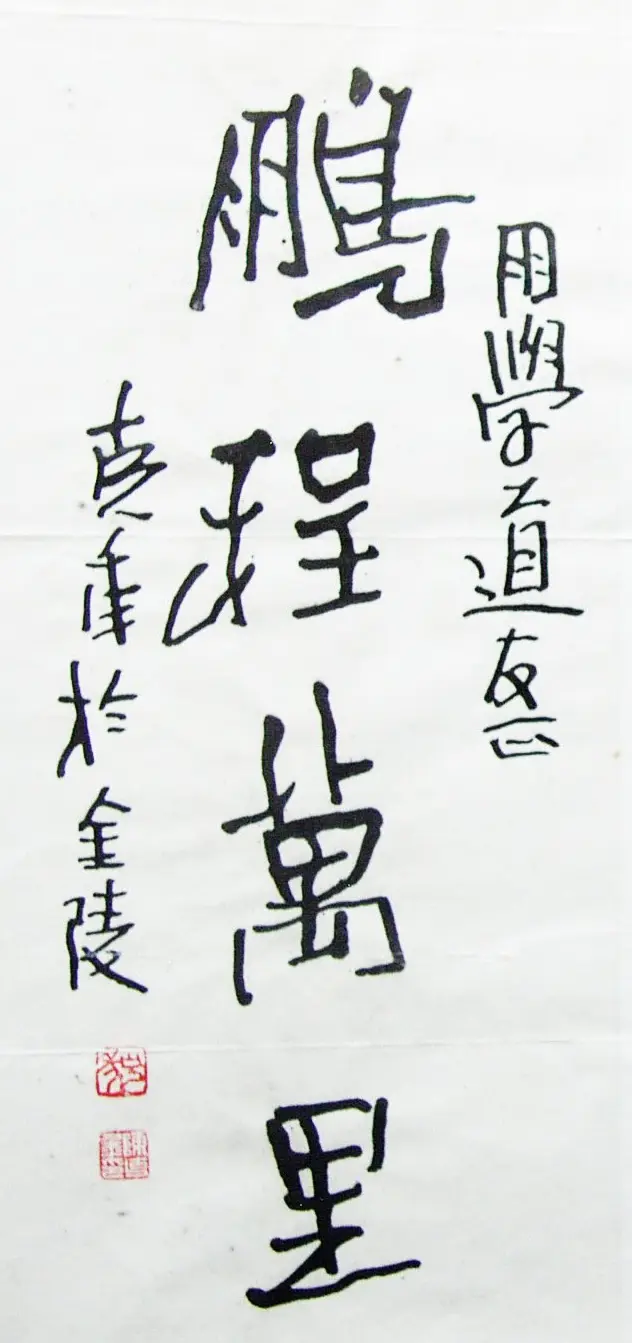 用學道友正
鵬程萬里
克年於金陵